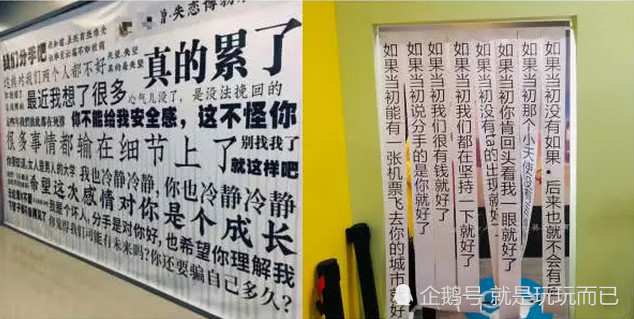 失恋博物
我们分手吧
真的累了
这样对我们两个人都不好
最近我想了很多
心气儿没了，是没法挽回的
你不能给我安全感，这不怪你
很多事情都输在细节上了
别找我了
就这样吧
女人是男人的大学
我也冷静冷静，你也冷静冷静
希望这次感情对你是个成长
我是个坏人，分手是对你好，也希望你理解我
你觉得我们可能有未来吗？你还要骗自己多久？
如果当初能有一张机票飞去你的城市就好
如果当初说分手的是你就好了
如果当初我们很有钱就好了
如果当初我们都在坚持一下就好了
如果当初没有ta的出现就好
如果当初你肯回头看我一眼就好了
如果当初那个小天使没有
如果当初没有如果·后来也就不会有
企鹅号 就是玩玩而已